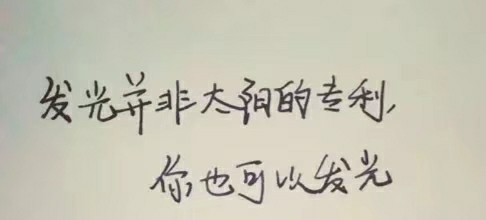 发光并非太阳的专利,
你也可以发光